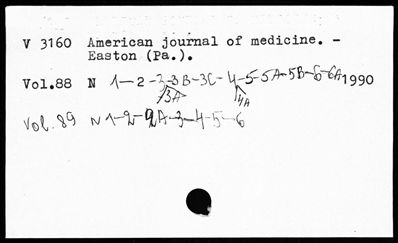 V 3160 American journal of medicine. -
Easton (Pa.).
Vol.88 N 1-2-3-3B-3C-4-5-5A-5B-6-6A 1990
3A 4A
Vol. 89 N 1-2-2A-3-4-5-6